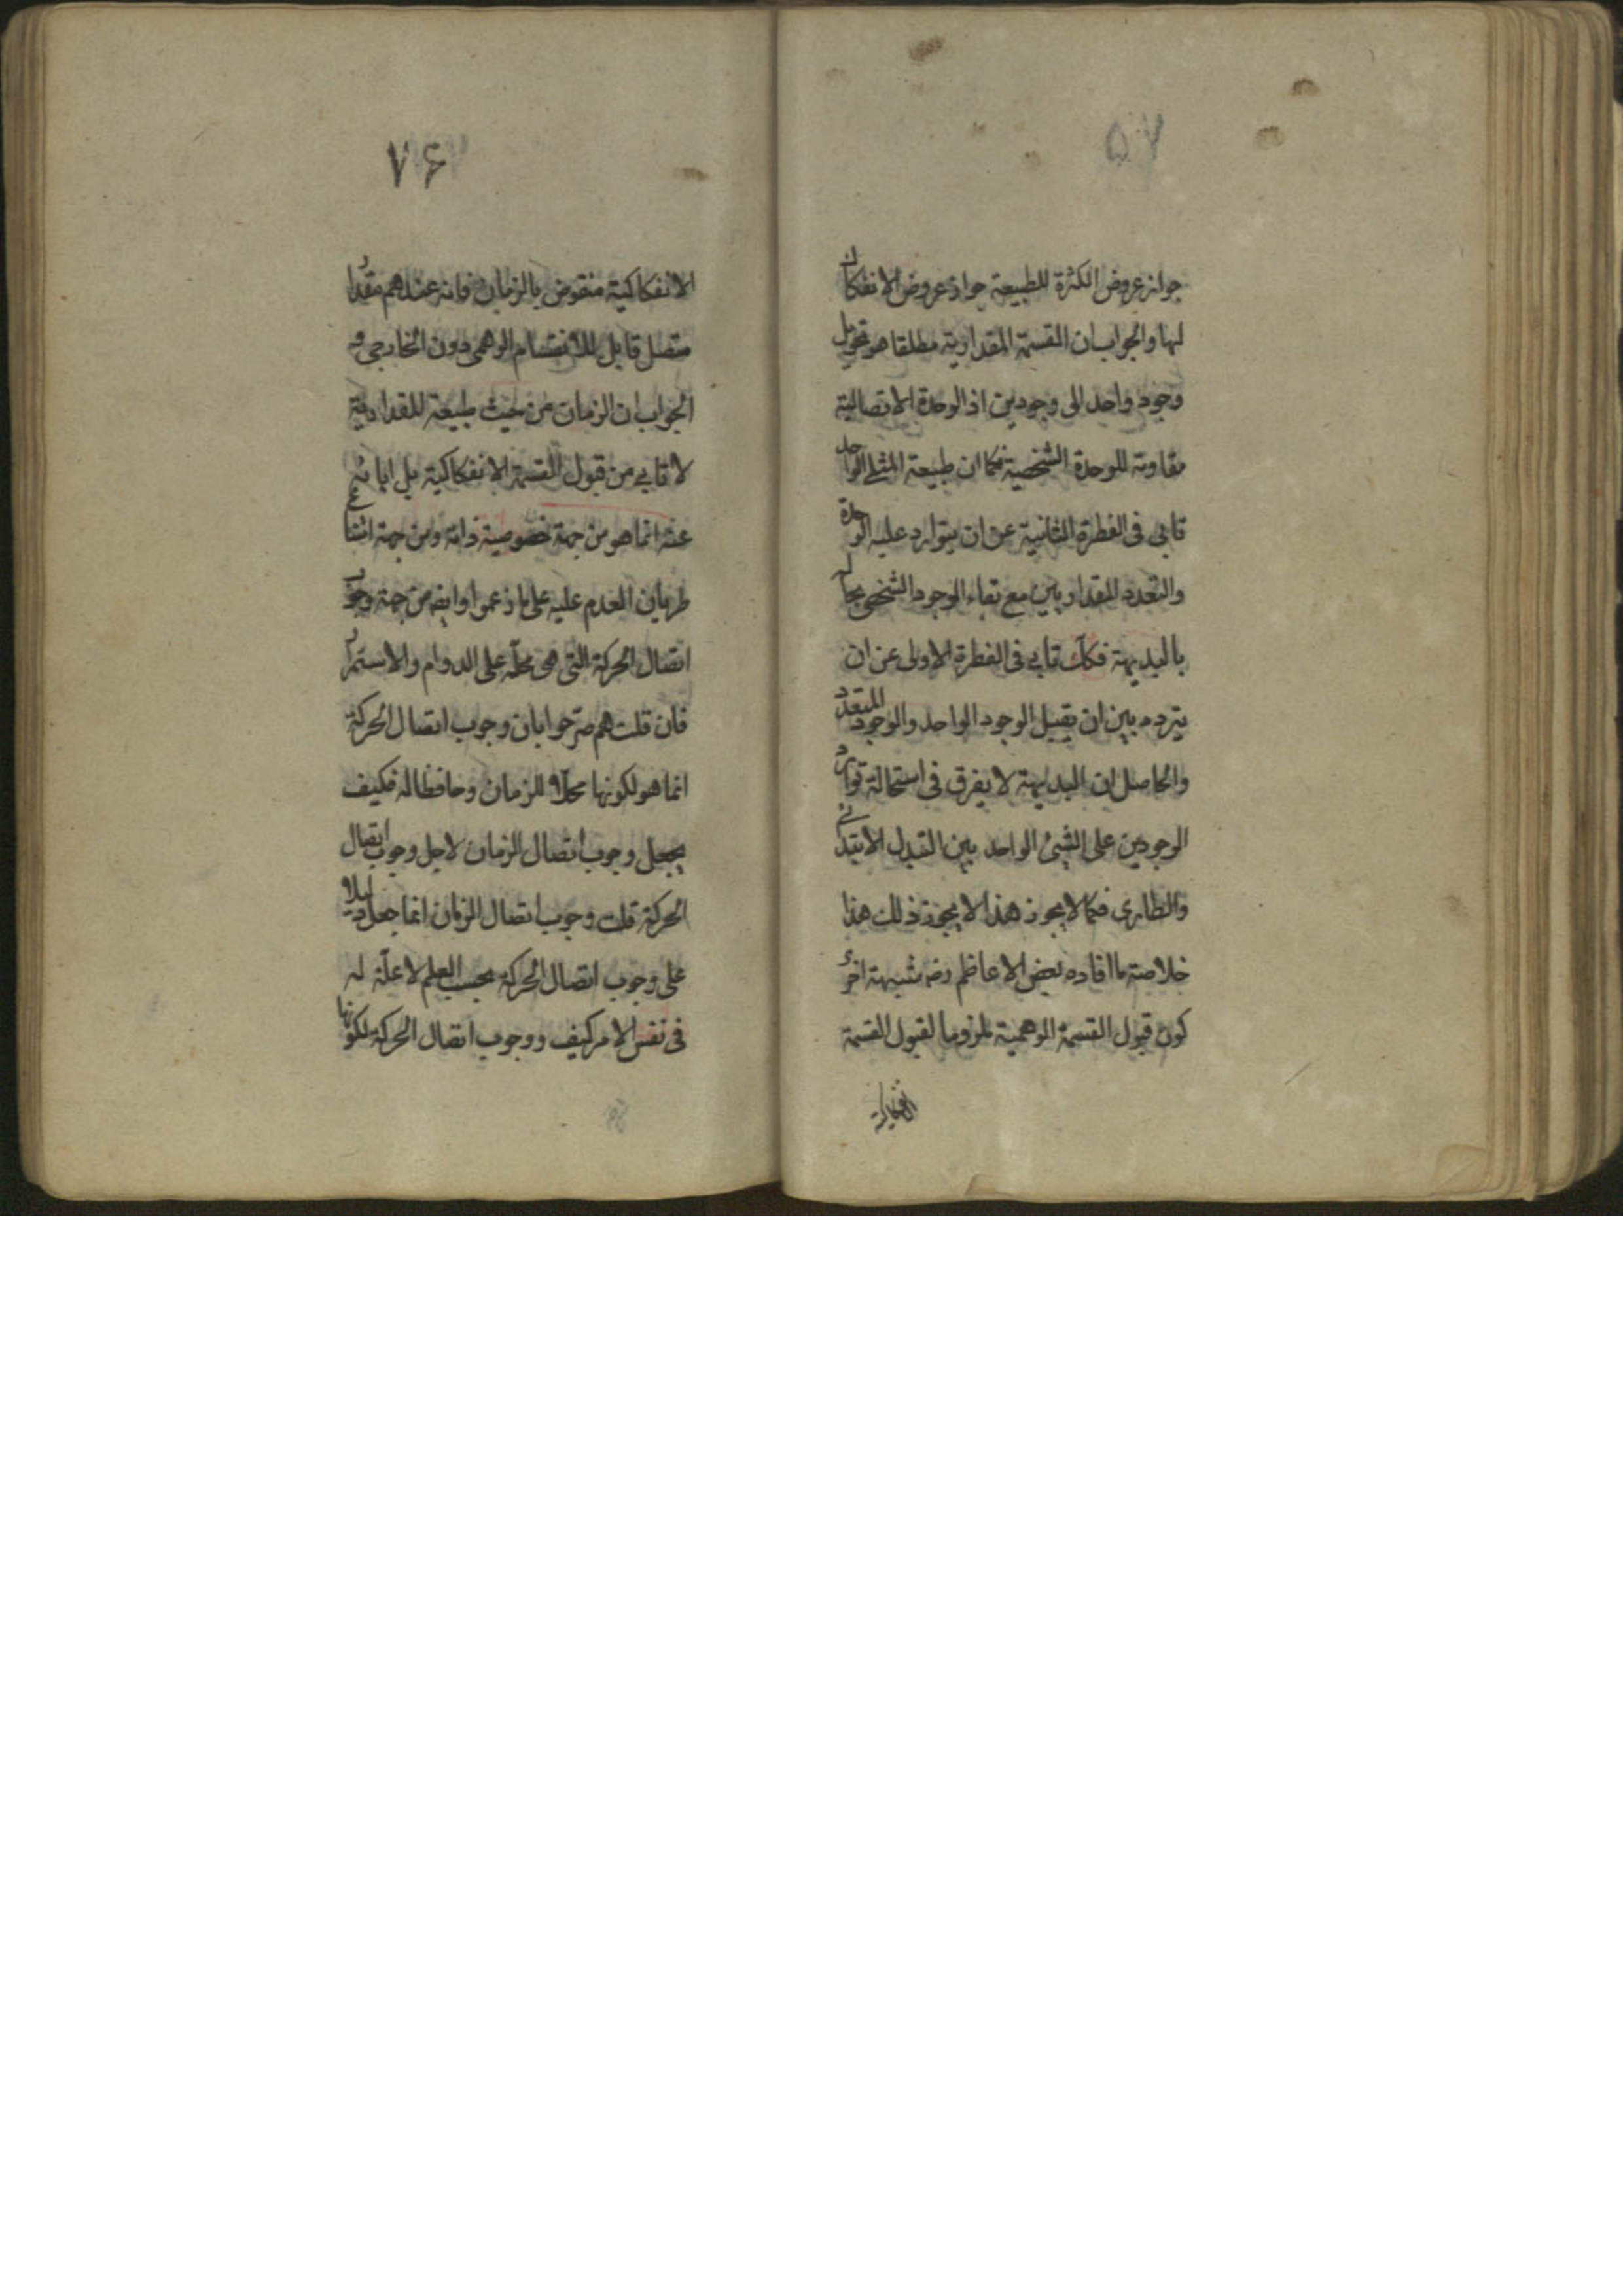 ٥٧
جواز عروض الكثرة للطبيعة جواز عروض الانفكاك
لها والجواب ان القسمة المقدارية مطلقا هو تحويل
وجود واحد الى وجودين اذ الوحدة الاتصالية
مقاوتة للوحدة الشخصية فكما ان طبيعة المثلى الواحد
تابى فى الفطرة الثانية عن ان يتوارد عليه الوحدة
والتعدد المقداريين مع بقاء الوجود الشخصى بحاله
بالبديهة فكك تابى فى الفطرة الاولى عن ان
يتردد بين ان يقبل الوجود الواحد والوجود المتعدد
والحاصل ان البديهة لا يفرق فى استحالة توارد
الوجودين على الشيئ الواحد بين التبدل الابتدائى
والطارى فكما لا يجوز هذا لا يجوز ذلك هذا
خلاصة ما افاده بعض الاعاظم رض شبهة اخرى
كون قبول القسمة الوهمية ملزوما لقبول القسمة
الانفكاكية
٧۶
الانفكاكية منقوض بالزمان فانه عندهم مقدار
متصل قابل للانقسام الوهمى دون الخارجى و
الجواب ان الزمان من حيث طبيعة المقدارية
لا تابى من قبول القسمة الانفكاكية بل اباؤه
عنه انما هو من جهة خصوصية ذاته ومن جهة امتناع
طريان العدم عليه على ما زعموا وايضه من جهة وجوب
اتصال الحركة التى هى محلّه على الدوام والاستمرار
فان قلت هم صرّحوا بان وجوب اتصال الحركة
انما هو لكونها محلا للزمان وحافظا له فكيف
يجعل وجوب اتصال الزمان لاجل وجوب اتصال
الحركة قلت وجوب اتصال الزمان انما جعل دليلا
على وجوب اتصال الحركة بحسب العلم لا علّة له
فى نفس الامر كيف ووجوب اتصال الحركة لكونها